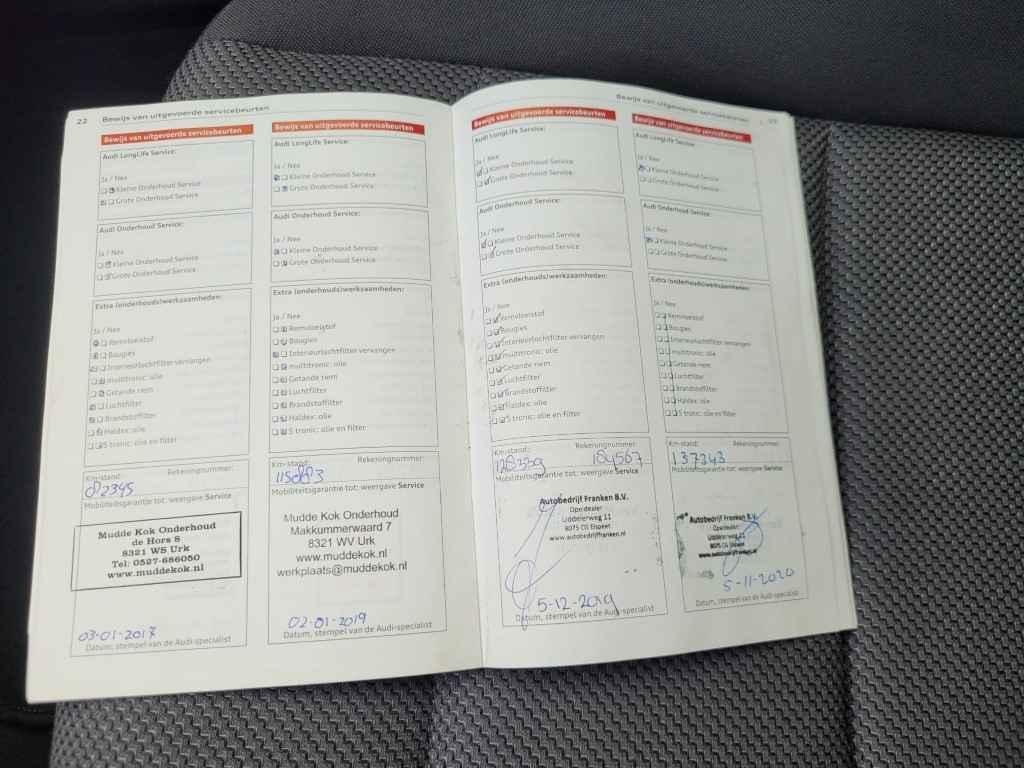 22 Bewijs van uitgevoerde servicebeurten
Bewijs van uitgevoerde servicebeurten
Audi LongLife Service:
Ja / Nee
Kleine Onderhoud Service
Grote Onderhoud Service
Audi Onderhoud Service:
Ja / Nee
Kleine Onderhoud Service
Grote Onderhoud Service
Extra (onderhouds)werkzaamheden:
Ja / Nee
Remvloeistof
Bougies
Interieurluchtfilter vervangen
multitronic: olie
Getande riem
Luchtfilter
Brandstoffilter
Haldex: olie
S tronic: olie en filter
Km-stand: Rekeningnummer:
82345
Mobiliteitsgarantie tot: weergave Service
Mudde Kok Onderhoud
de Hors 8
8321 WS Urk
Tel: 0527-686050
www.muddekok.nl
03-01-2017
Datum, stempel van de Audi-specialist
Bewijs van uitgevoerde servicebeurten
Audi LongLife Service:
Ja / Nee
Kleine Onderhoud Service
Grote Onderhoud Service
Audi Onderhoud Service:
Ja / Nee
Kleine Onderhoud Service
Grote Onderhoud Service
Extra (onderhouds)werkzaamheden:
Ja / Nee
Remvloeistof
Bougies
Interieurluchtfilter vervangen
multitronic: olie
Getande riem
Luchtfilter
Brandstoffilter
Haldex: olie
S tronic: olie en filter
Km-stand: Rekeningnummer:
Mobiliteitsgarantie tot: weergave Service
Mudde Kok Onderhoud
Makkummerwaard 7
8321 WV Urk
www.muddekok.nl
werkplaats@muddekok.nl
02-01-2019
Datum, stempel van de Audi-specialist
Bewijs van uitgevoerde servicebeurten
Bewijs van uitgevoerde servicebeurten
Audi LongLife Service:
Ja / Nee
Kleine Onderhoud Service
Grote Onderhoud Service
Audi Onderhoud Service:
Ja / Nee
Kleine Onderhoud Service
Grote Onderhoud Service
Extra (onderhouds)werkzaamheden:
Ja / Nee
Remvloeistof
Bougies
Interieurluchtfilter vervangen
multitronic: olie
Getande riem
Luchtfilter
Brandstoffilter
Haldex: olie
S tronic: olie en filter
Km-stand: Rekeningnummer:
128339 184567
Mobiliteitsgarantie tot: weergave Service
Autobedrijf Franken B.V.
Opeldealer
Uddelerweg 11
8075 CG Elspeet
www.autobedrijffranken.nl
5-12-2019
Datum, stempel van de Audi-specialist
Bewijs van uitgevoerde servicebeurten
Audi LongLife Service:
Ja / Nee
Kleine Onderhoud Service
Grote Onderhoud Service
Audi Onderhoud Service:
Ja / Nee
Kleine Onderhoud Service
Grote Onderhoud Service
Extra (onderhouds)werkzaamheden:
Ja / Nee
Remvloeistof
Bougies
Interieurluchtfilter vervangen
multitronic: olie
Getande riem
Luchtfilter
Brandstoffilter
Haldex: olie
S tronic: olie en filter
Km-stand: Rekeningnummer:
137343
Mobiliteitsgarantie tot: weergave Service
Autobedrijf Franken B.V.
Opeldealer
Uddelerweg 11
8075 CG Elspeet
www.autobedrijffranken.nl
5-11-2020
Datum, stempel van de Audi-specialist